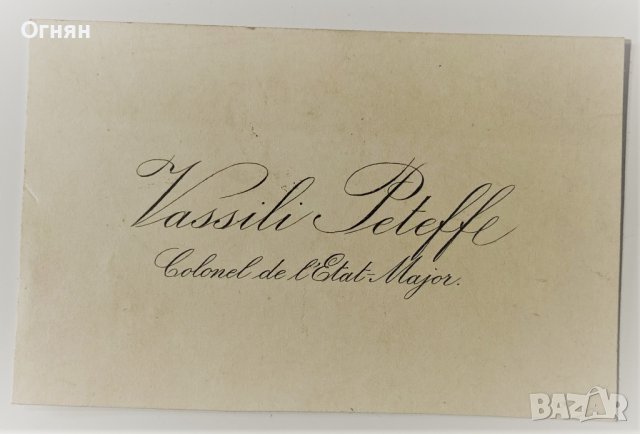 Огнян
Vassili Peteffe
Colonel de l'Etat-Major.
BAZAR